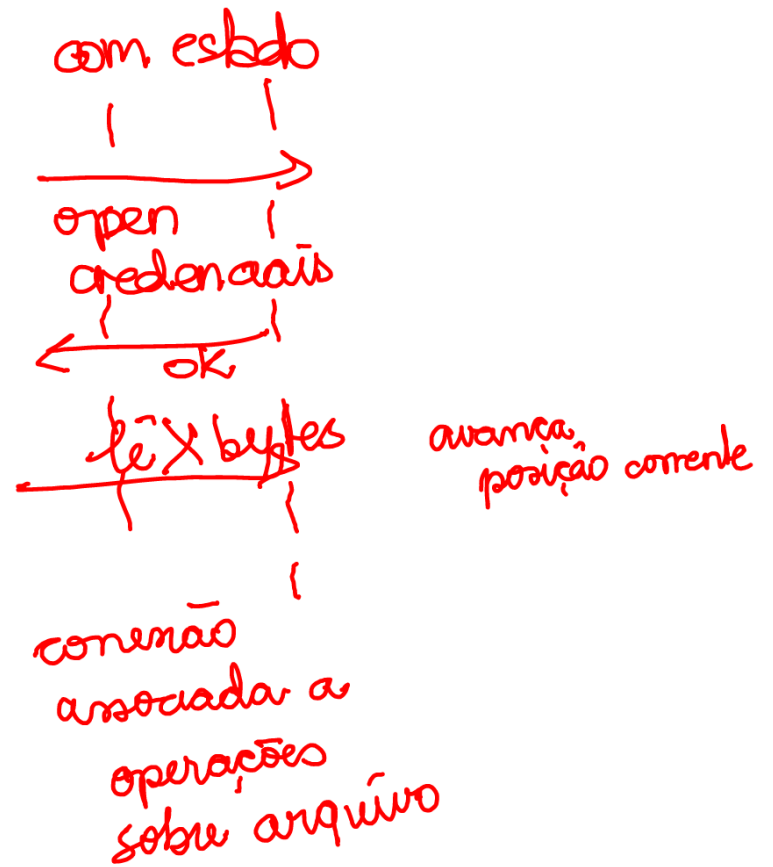 com estado
open
credenciais
ok
lê X bytes
avança
posição corrente
conexão
associada a
operações
sobre arquivo